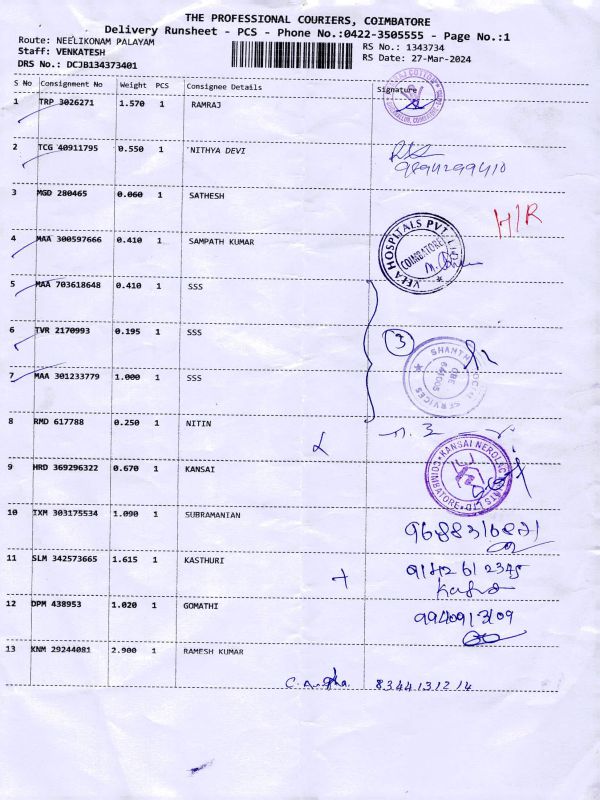 THE PROFESSIONAL COURIERS, COIMBATORE
Delivery Runsheet - PCS - Phone No.:0422-3505555 - Page No.:1
Route: NEELIKONAM PALAYAM
Staff: VENKATESH
DRS No.: DCJB134373401
RS No.: 1343734
RS Date: 27-Mar-2024
S No Consignment No Weight PCS Consignee Details Signature
1 TRP 3026271 1.570 1 RAMRAJ
2 TCG 40911795 0.550 1 NITHYA DEVI
9894299410
3 MGD 280465 0.060 1 SATHESH
H/R
4 MAA 300597666 0.410 1 SAMPATH KUMAR
VELA HOSPITALS PVT LTD
COIMBATORE
5 MAA 703618648 0.410 1 SSS
6 TVR 2170993 0.195 1 SSS
3
SHANTHI SOCIAL SERVICES
CBE
641005
7 MAA 301233779 1.000 1 SSS
8 RMD 617788 0.250 1 NITIN
9 HRD 369296322 0.670 1 KANSAI
KANSAI NEROLAC
COIMBATORE
10 IXM 303175534 1.090 1 SUBRAMANIAN
11 SLM 342573665 1.615 1 KASTHURI
12 DPM 438953 1.020 1 GOMATHI
9940913109
13 KNM 29244081 2.900 1 RAMESH KUMAR
8344131214